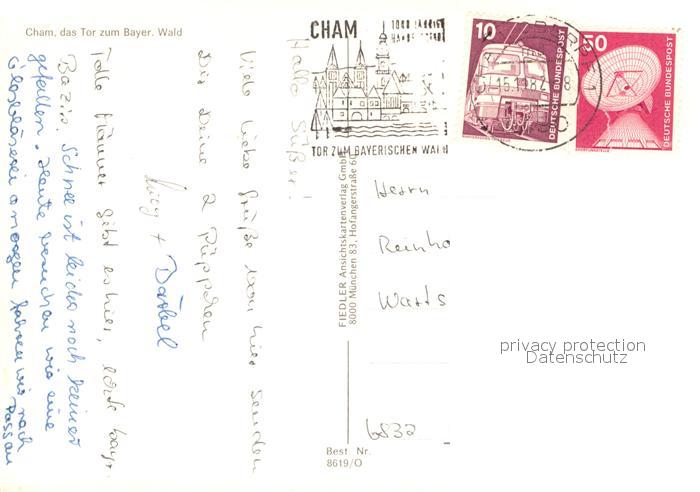 Cham, das Tor zum Bayer. Wald
CHAM
1000 JÄHRIGE
HANDELSSTADT
TOR ZUM BAYERISCHEN WALD
10
DEUTSCHE BUNDESPOST
50
DEUTSCHE BUNDESPOST
Hallo Süßer!
Viele liebe Grüße von hier senden
Dir Deine 2 Püppchen
+ Bärbel
Tolle Männer gibt es hier, echte bayr.
Bazis. Schnee ist leider noch keiner
gefallen. Heute besuchen wir eine
Glasbläserei u. morgen fahren wir nach
Passau
FIEDLER Ansichtskartenverlag GmbH
8000 München 83, Hofangerstraße 60
Herrn
Reinho
Watts
6832
privacy protection
Datenschutz
Best. Nr.
8619/O